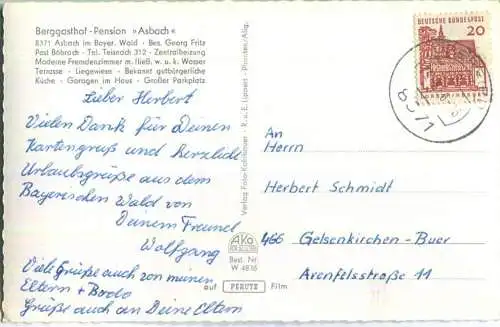 Berggasthof - Pension »Asbach«
8371 Asbach im Bayer. Wald - Bes. Georg Fritz
Post Böbrach - Tel. Teisnach 312 - Zentralheizung
Moderne Fremdenzimmer m. fließ. w. u. k. Wasser
Terrasse - Liegewiesen - Bekannt gutbürgerliche
Küche - Garagen im Haus - Großer Parkplatz.
Lieber Herbert
Vielen Dank für Deinen
Kartengruß und herzliche
Urlaubsgrüße aus dem
Bayerischen Wald von
Deinem Freund
Wolfgang
Viele Grüße auch von meinen
Eltern + Bodo
Grüße auch an Deine Eltern
Verlag Foto-Kohlbauer - R. u. E. Lipaset - Pfronten/Allg.
AKO
Best. Nr.
W 4816
auf PERUTZ Film
DEUTSCHE BUNDESPOST
20
8371
An
Herrn
Herbert Schmidt
466 Gelsenkirchen-Buer
Arenfelsstraße 11